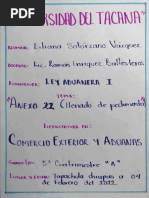 "UNIVERSIDAD DEL TACANA"
ALUMNA: Liliana Solorzano Vazquez
DOCENTE: Lic. Ramon Enriquez Ballesteros
LEY ADUANERA I
TEMA:
"ANEXO 22 (llenado de pedimento)"
LICENCIATURA EN:
COMERCIO EXTERIOR Y ADUANAS
5° Cuatrimestre "A"
LUGAR Y FECHA: Tapachula chiapas a 04
de Febrero del 2022.